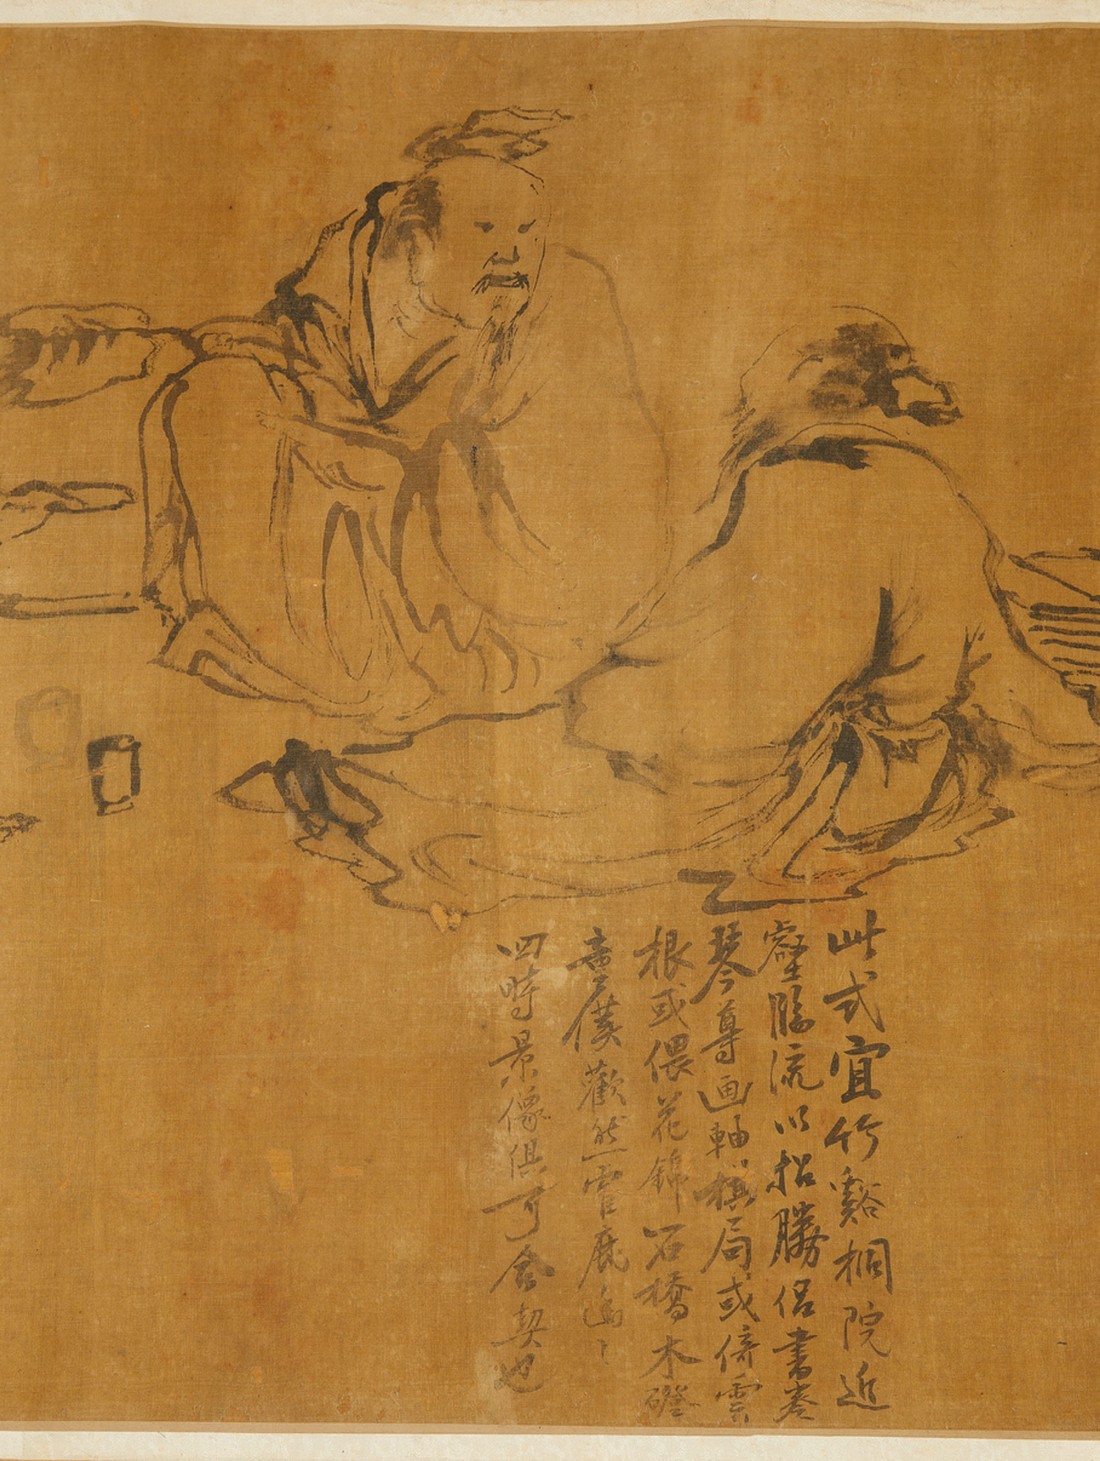 此式宜竹谿桐院近
壑臨流以招勝侶書卷
琴尊画軸棋局或倚雲
根或偎花錦石橋木磴
童僕歡然
四時景像俱可合契也